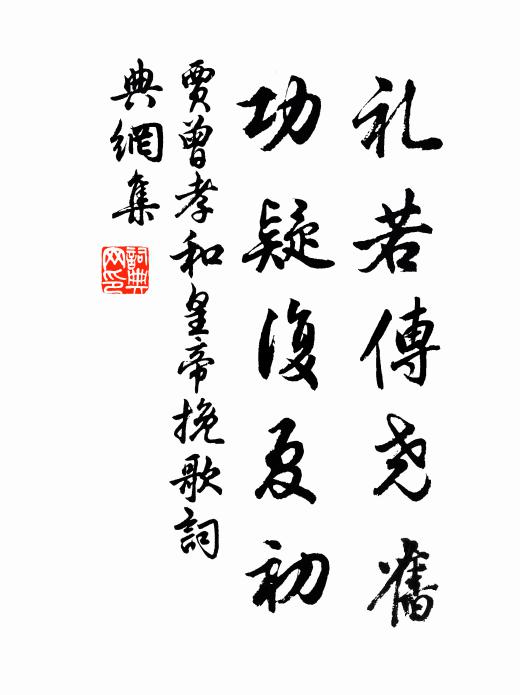 礼若傳尧舊
功疑復夏初
賈曾孝和皇帝挽歌詞
典網集
詞典网印